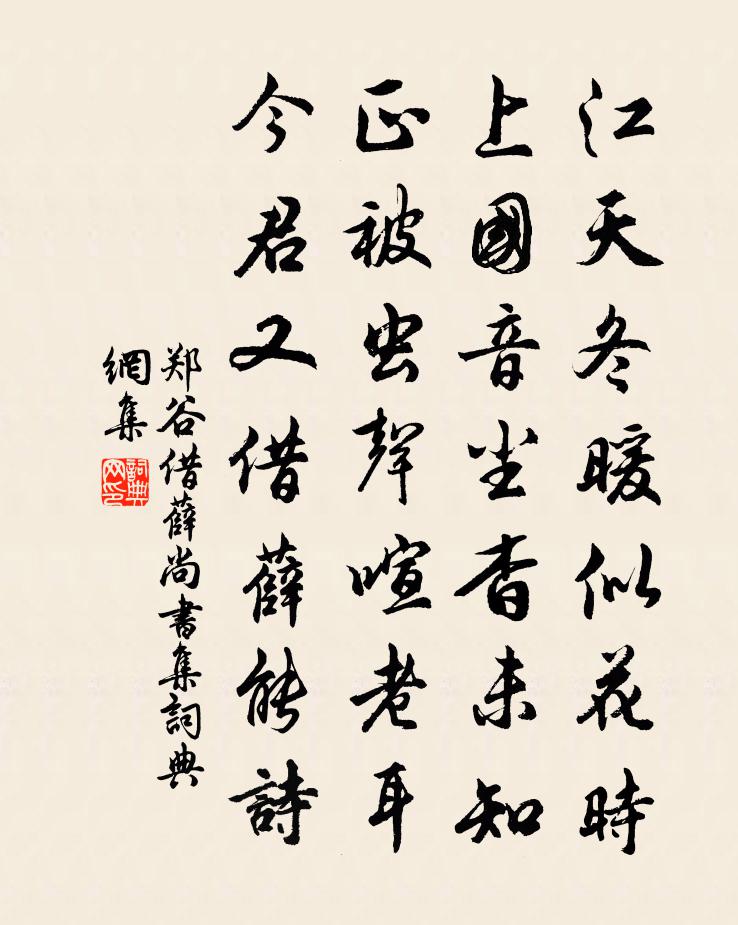 江天冬暖似花時
上國音塵杳未知
正被虫聲喧老耳
今君又借薛能詩
郑谷借薛尚書集詞典
網集
詞典网印